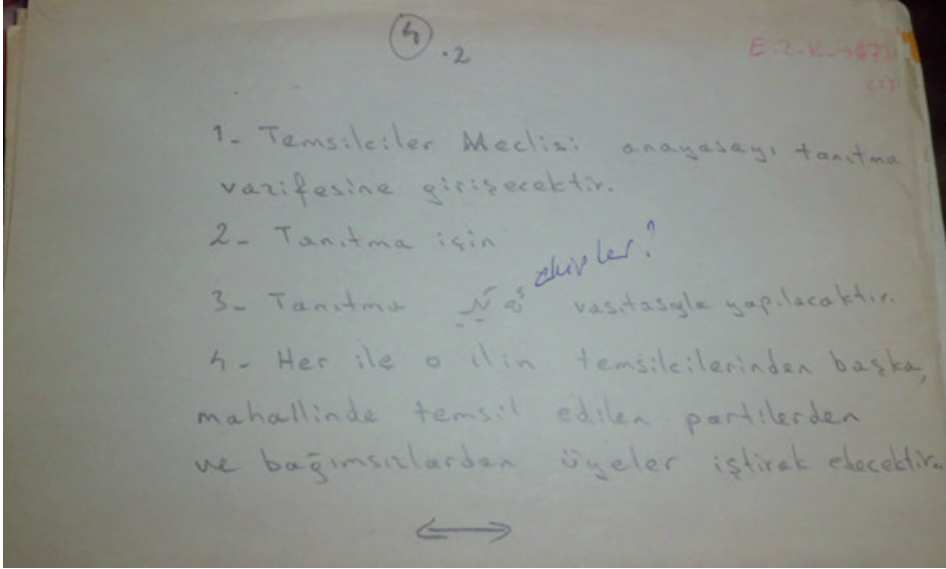 4 .2
E.2.K.
1- Temsilciler Meclisi anayasayı tanıtma
vazifesine girişecektir.
2- Tanıtma için
ekipler?
3- Tanıtma vasıtasıyle yapılacaktır.
4- Her ile o ilin temsilcilerinden başka,
mahallinde temsil edilen partilerden
ve bağımsızlardan üyeler iştirak edecektir.